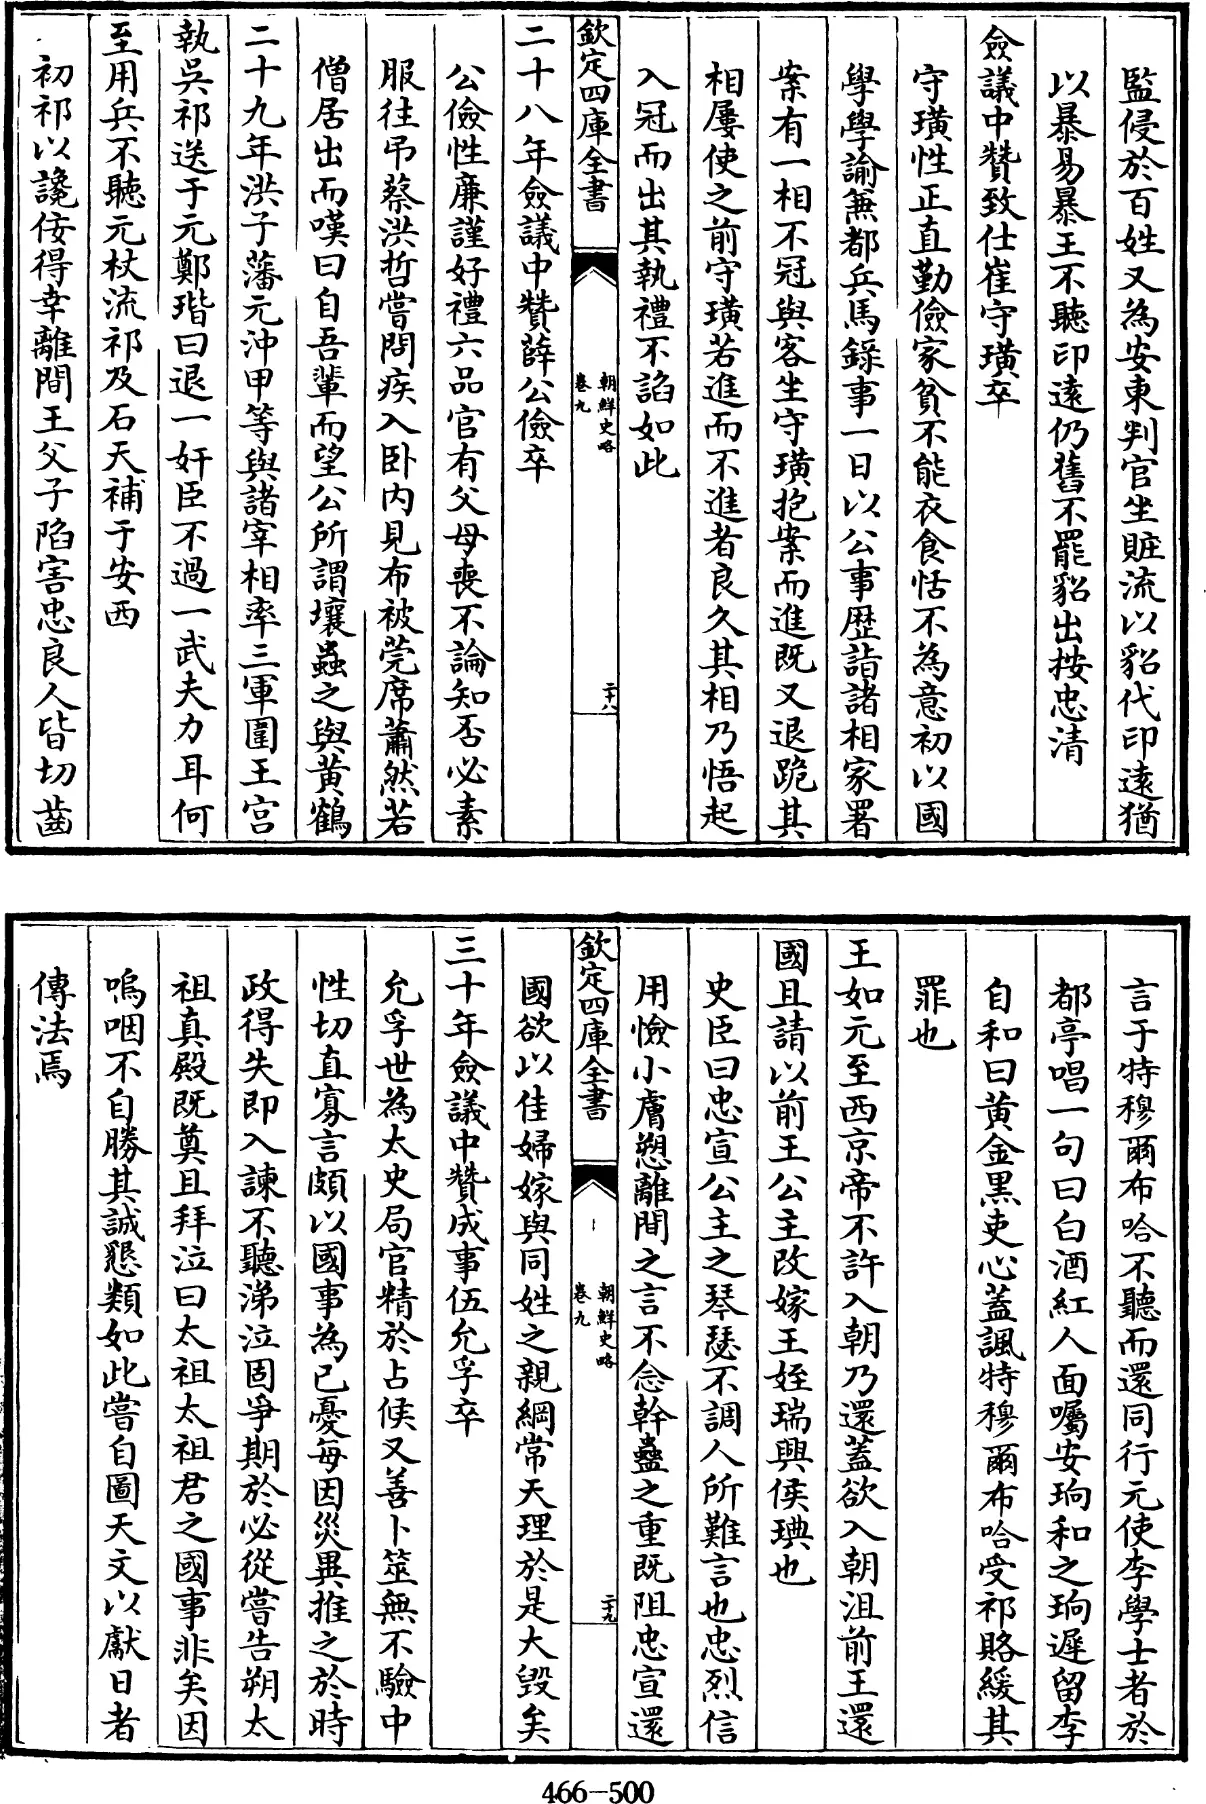 監侵於百姓又為安東判官坐贓流以貂代印遠猶
以暴易暴王不聽印遠仍舊不罷貂出按忠清
僉議中贊致仕崔守璜卒
守璜性正直勤儉家貧不能衣食恬不為意初以國
學學諭兼都兵馬錄事一日以公事歴詣諸相家署
案有一相不冠與客坐守璜抱案而進既又退跪其
相屢使之前守璜若進而不進者良久其相乃悟起
入冠而出其執禮不諂如此
欽定四庫全書
朝鮮史略
卷九
二十八
二十八年僉議中贊薛公儉卒
公儉性廉謹好禮六品官有父母喪不論知否必素
服往弔蔡洪哲嘗問疾入卧内見布被莞席蕭然若
僧居出而嘆曰自吾輩而望公所謂壤蟲之與黄鶴
二十九年洪子藩元沖甲等與諸宰相率三軍圍王宫
執吳祁送于元鄭瑎曰退一奸臣不過一武夫力耳何
至用兵不聽元杖流祁及石天補于安西
初祁以讒佞得幸離間王父子陷害忠良人皆切齒
言于特穆爾布哈不聽而還同行元使李學士者於
都亭唱一句曰白酒紅人面囑安珦和之珦遲留李
自和曰黄金黑吏心蓋諷特穆爾布哈受祁賂緩其
罪也
王如元至西京帝不許入朝乃還蓋欲入朝沮前王還
國且請以前王公主改嫁王姪瑞興侯琠也
史臣曰忠宣公主之琴瑟不調人所難言也忠烈信
用憸小膚愬離間之言不念幹蠱之重既阻忠宣還
欽定四庫全書
朝鮮史略
卷九
二十九
國欲以佳婦嫁與同姓之親綱常天理於是大毀矣
三十年僉議中贊成事伍允孚卒
允孚世為太史局官精於占候又善卜筮無不驗中
性切直寡言頗以國事為已憂每因災異推之於時
政得失即入諫不聽涕泣固爭期於必從嘗告朔太
祖真殿既奠且拜泣曰太祖太祖君之國事非矣因
嗚咽不自勝其誠懇類如此嘗自圖天文以獻日者
傳法焉
466-500